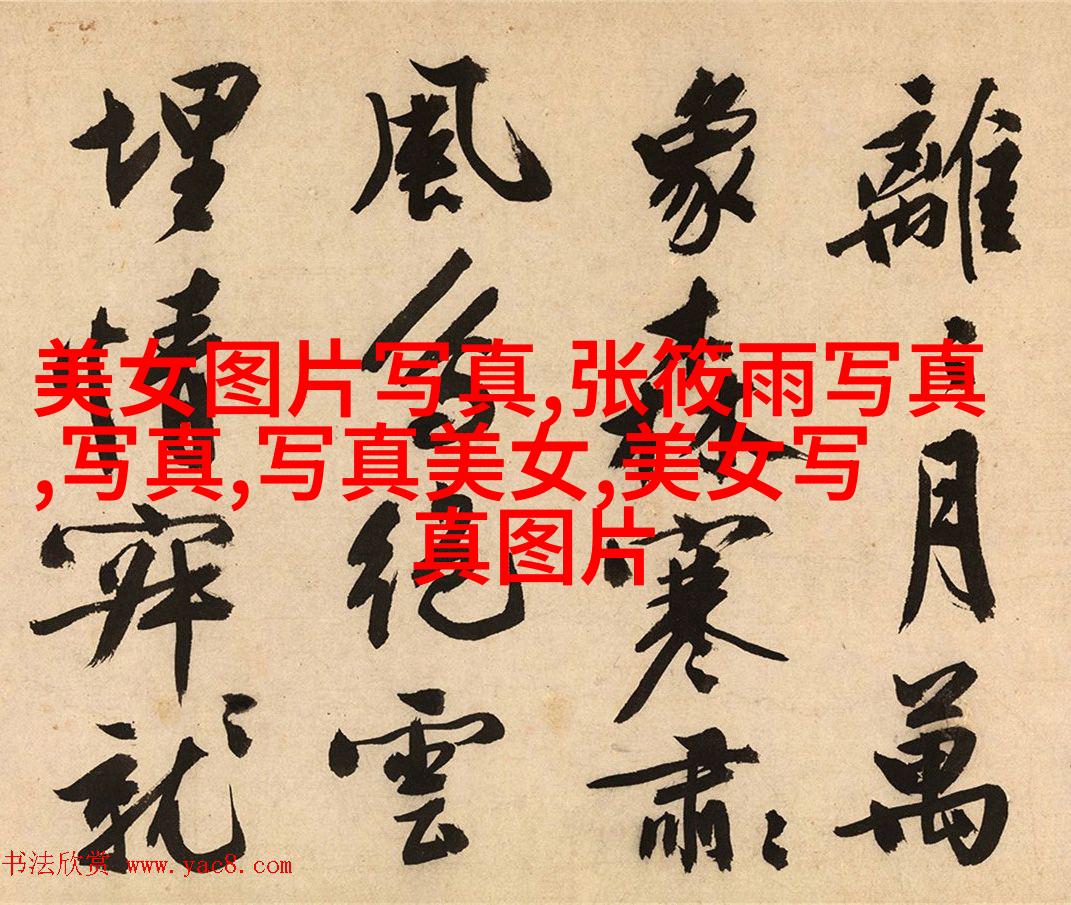 離月萬
象森寒肅
風繞雲
埋情穽就
美女图片写真,张筱雨写真
,写真,写真美女,美女写
真图片
书法欣赏 www.yac8.com